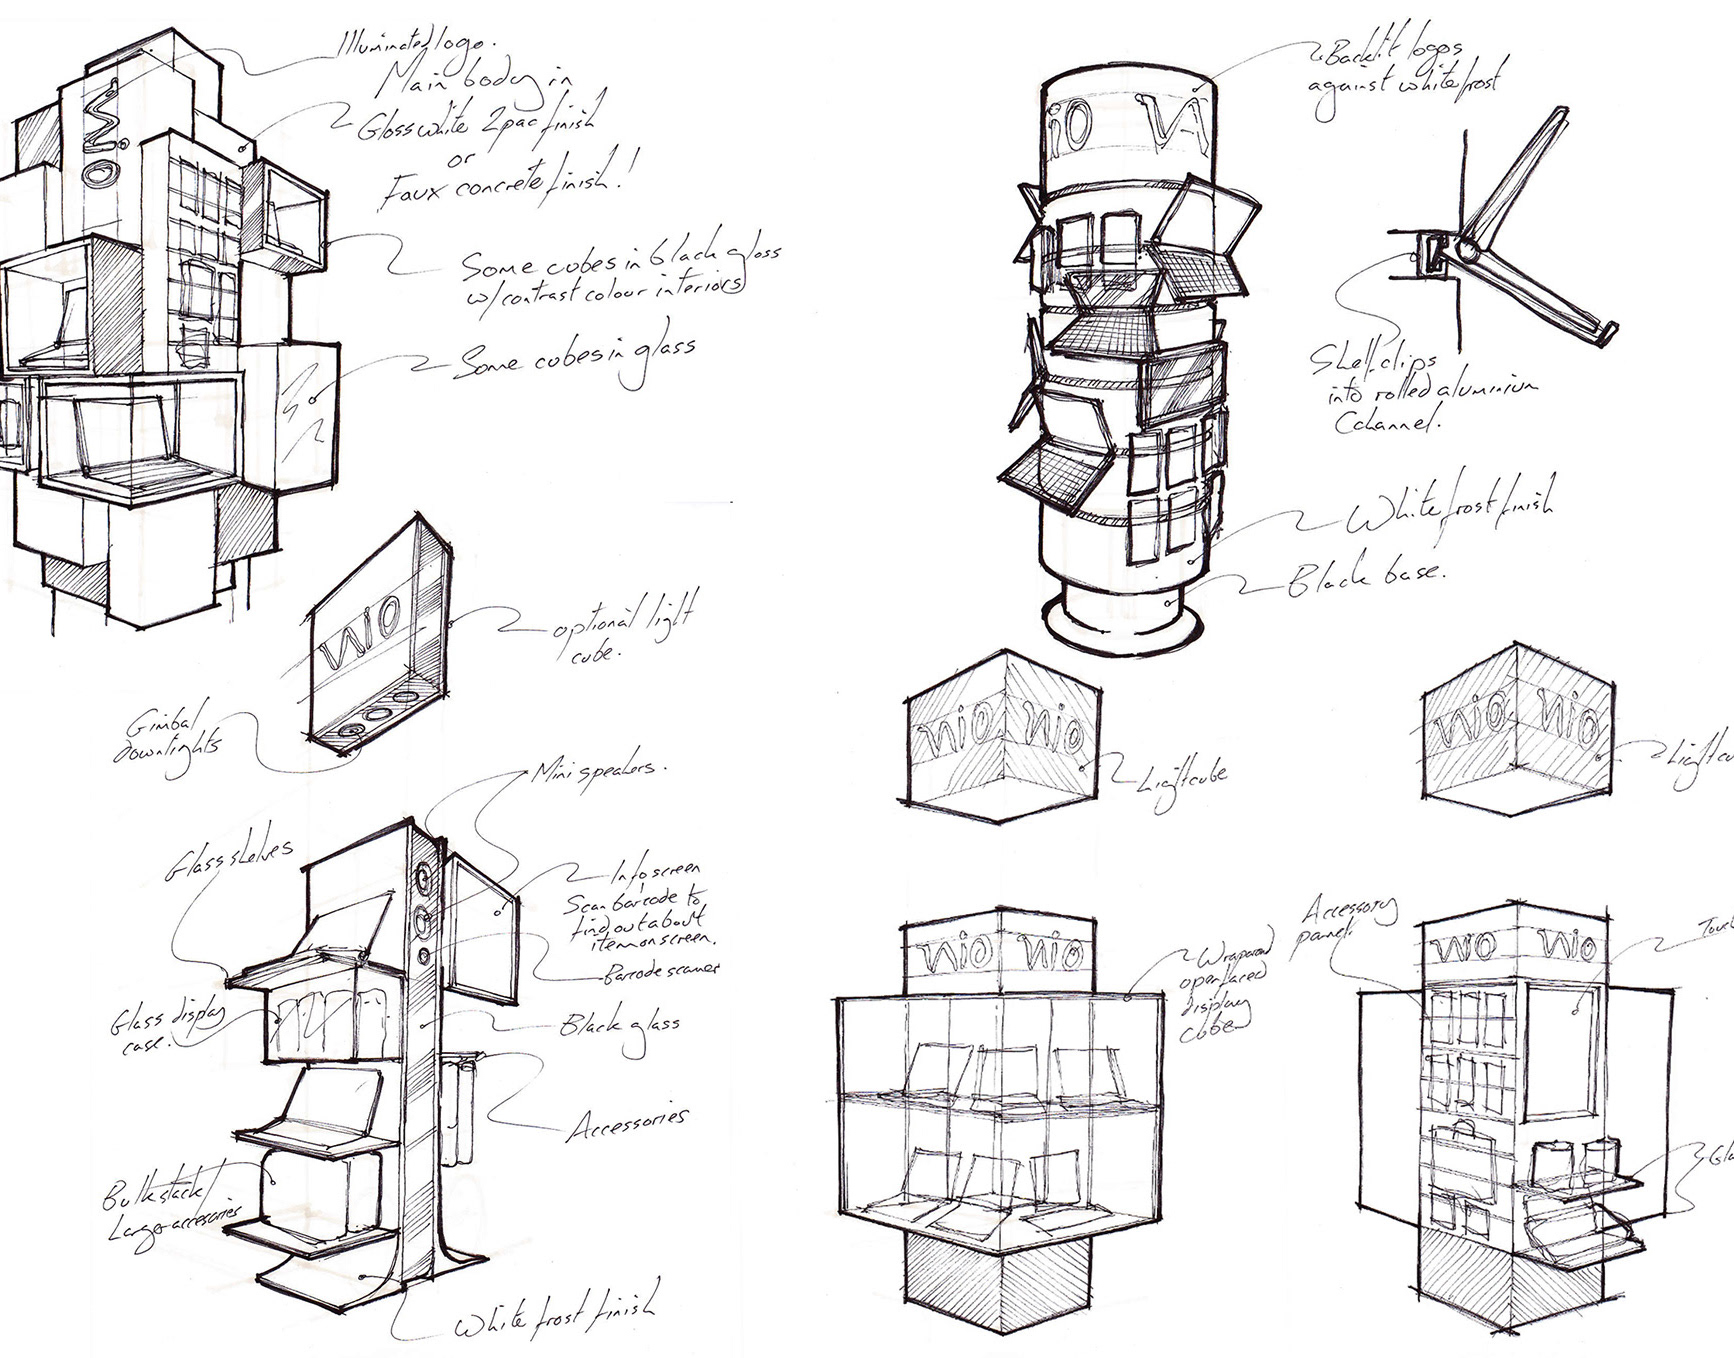 Illuminated logo.
Main body in
Gloss white 2pac finish
or
Faux concrete finish!
Some cubes in black gloss
w/ contrast colour interiors
Some cubes in glass
nio
optional light
cube.
nio
Gimbal
downlights
Backlit logos
against white frost
io N
Shelf clips
into rolled aluminium
C channel.
White frost finish
Black base.
nio nio
Lightcube
nio nio
Lightcu
Mini speakers.
Glass shelves
Info screen
Scan barcode to
find out about
item on screen.
Barcode scanner
Glass display
case.
Black glass
Accessories
Bulk stack/
Large accesories
White frost finish
nio nio
Wraparound
open faced
display
cube
Accessory
panel.
nio nio
Touc
Gla